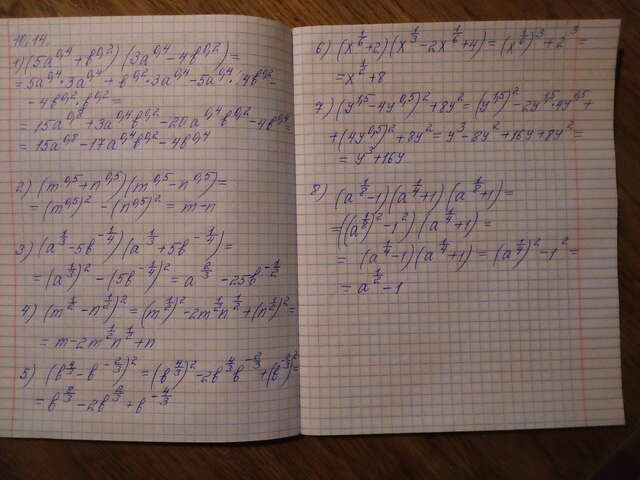 10.14.
1) (5a^{0,4} + b^{0,2}) (3a^{0,4} - 4b^{0,2}) =
= 5a^{0,4} · 3a^{0,4} + b^{0,2} · 3a^{0,4} - 5a^{0,4} · 4b^{0,2} -
- 4b^{0,2} · b^{0,2} =
= 15a^{0,8} + 3a^{0,4}b^{0,2} - 20a^{0,4}b^{0,2} - 4b^{0,4} =
= 15a^{0,8} - 17a^{0,4}b^{0,2} - 4b^{0,4}
2) (m^{0,5} + n^{0,5}) (m^{0,5} - n^{0,5}) =
= (m^{0,5})^2 - (n^{0,5})^2 = m - n
3) (a^{1/3} - 5b^{-1/4}) (a^{1/3} + 5b^{-1/4}) =
= (a^{1/3})^2 - (5b^{-1/4})^2 = a^{2/3} - 25b^{-1/2}
4) (m^{1/2} - n^{1/2})^2 = (m^{1/2})^2 - 2m^{1/2}n^{1/2} + (n^{1/2})^2 =
= m - 2m^{1/2}n^{1/2} + n
5) (b^{4/3} - b^{-2/3})^2 = (b^{4/3})^2 - 2b^{4/3}b^{-2/3} + (b^{-2/3})^2 =
= b^{8/3} - 2b^{2/3} + b^{-4/3}
6) (x^{1/6} + 2) (x^{1/3} - 2x^{1/6} + 4) = (x^{1/6})^3 + 2^3 =
= x^{1/2} + 8
7) (y^{1,5} - 4y^{0,5})^2 + 8y^2 = (y^{1,5})^2 - 2y^{1,5} · 4y^{0,5} +
+ (4y^{0,5})^2 + 8y^2 = y^3 - 8y^2 + 16y + 8y^2 =
= y^3 + 16y
8) (a^{1/8} - 1) (a^{1/4} + 1) (a^{1/8} + 1) =
= ((a^{1/8})^2 - 1^2) (a^{1/4} + 1) =
= (a^{1/4} - 1) (a^{1/4} + 1) = (a^{1/4})^2 - 1^2 =
= a^{1/2} - 1